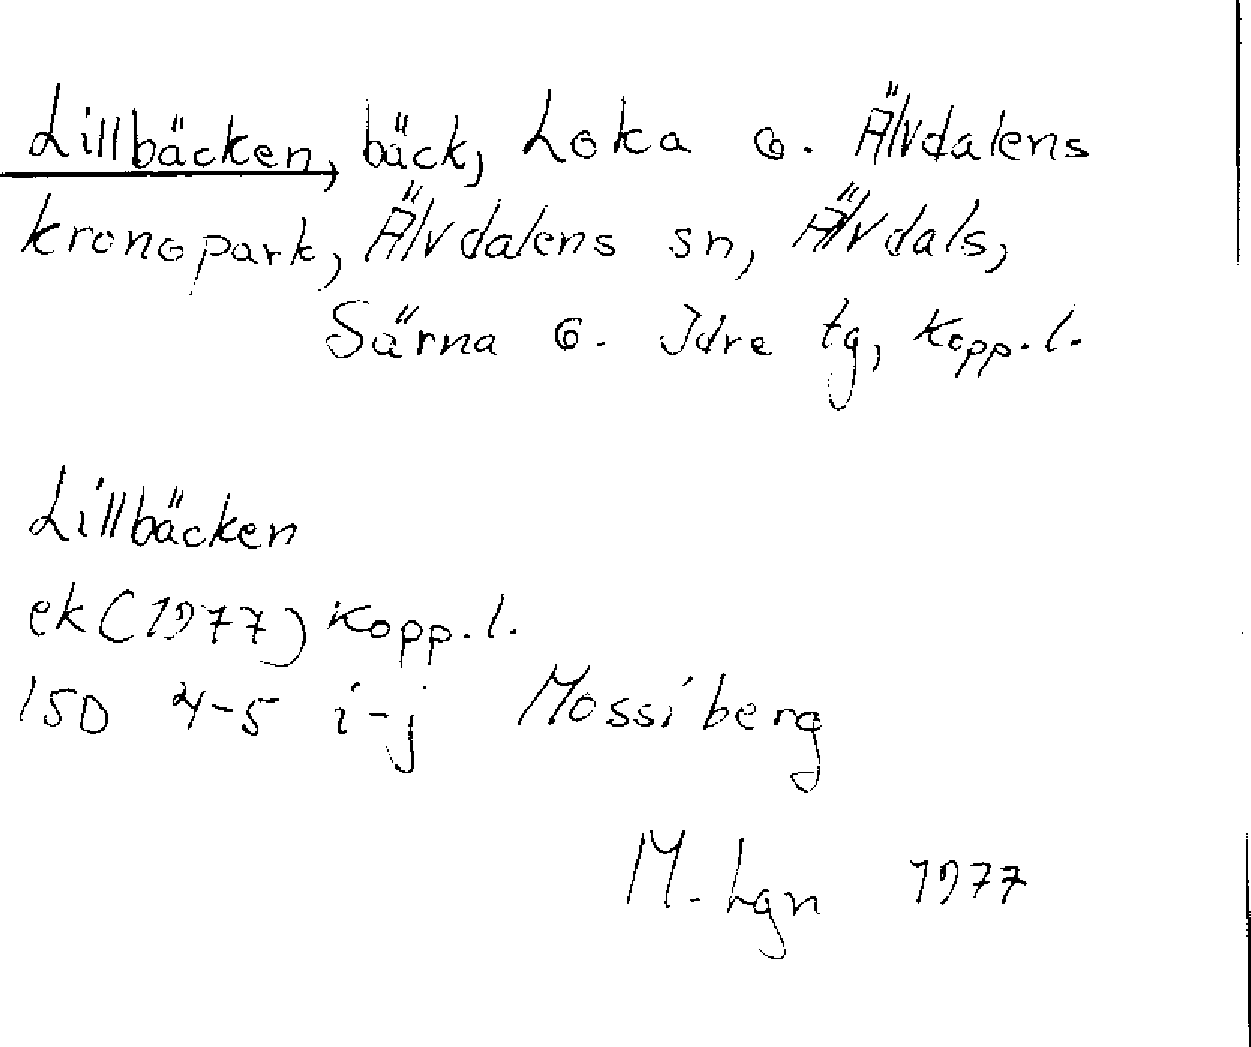 Lillbäcken, bäck, Loka o. Älvdalens
kronopark, Älvdalens sn, Älvdals,
Särna o. Idre tg, Kopp.l.
Lillbäcken
ek (1977) Kopp.l.
15D 4-5 i-j Mossiberg
M. Lgn 1977